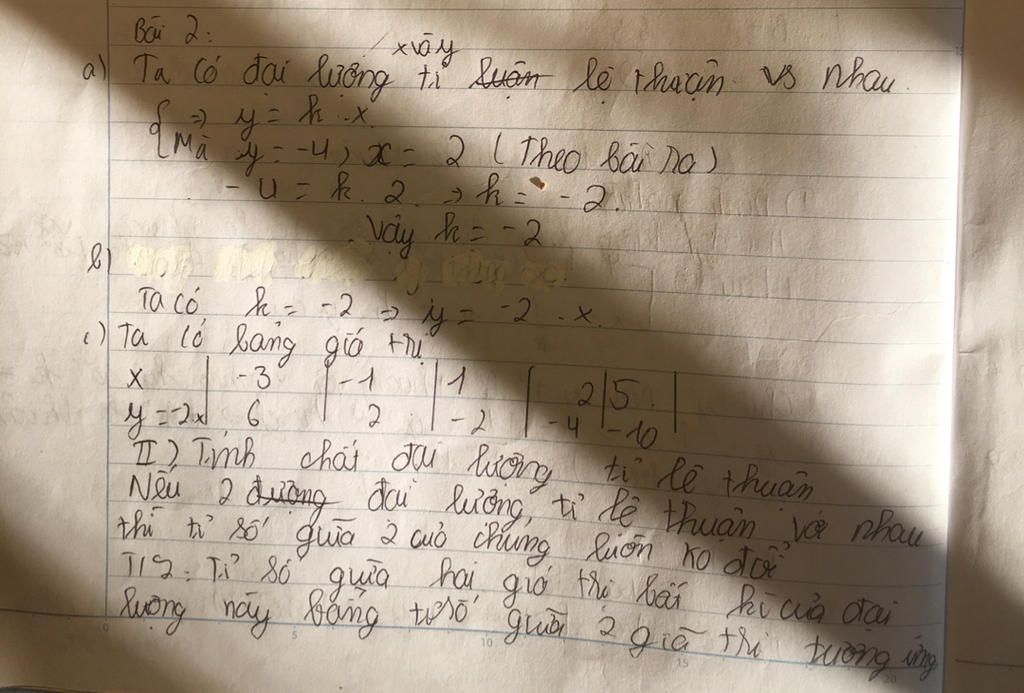 Bài 2:
x và y
a) Ta có đại lượng tỉ luận lệ thuận vs nhau.
=> y = k . x
Mà y = -4, x = 2 (Theo bài ra)
-4 = k. 2 => k = -2.
Vậy k = -2
b)
Ta có k = -2 => y = -2 . x.
c) Ta có bảng giá trị
x | -3 | -1 | 1 | 2 | 5 |
y = -2x | 6 | 2 | -2 | -4 | -10
II) Tính chất đại lượng tỉ lệ thuận
Nếu 2 đường đại lượng tỉ lệ thuận với nhau
thì tỉ số giữa 2 của chúng luôn ko đổi
T/S: Tỉ số giữa hai giá trị bất kì của đại
lượng này bằng tỉ số giữa 2 giá trị tương ứng